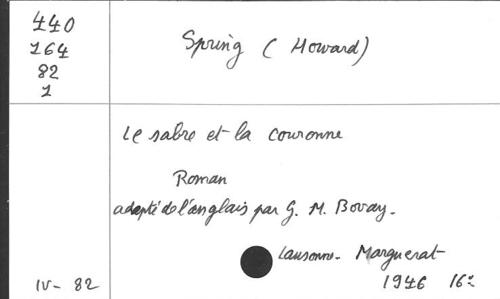 440
164
82
1
Spring (Howard)
Le sabre et la couronne
Roman
adapté de l'anglais par G. M. Bovay.
Lausanne. Marguerat
1946 16º
IV- 82